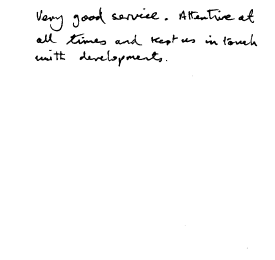 Very good service. Attentive at
all times and kept us in touch
with developments.